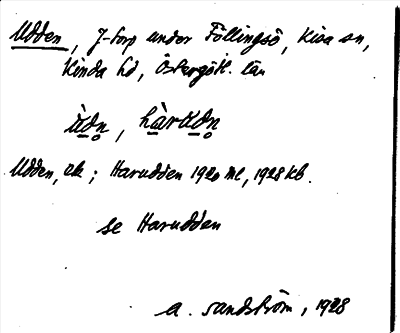 Udden, J-torp under Föllingsö, Kisa sn,
Kinda hd, Östergötl. län
ùdn̥, hàrudn̥
Udden, ek; Harudden 1920 ml, 1928 kb.
se Harudden
A. Sandström, 1928